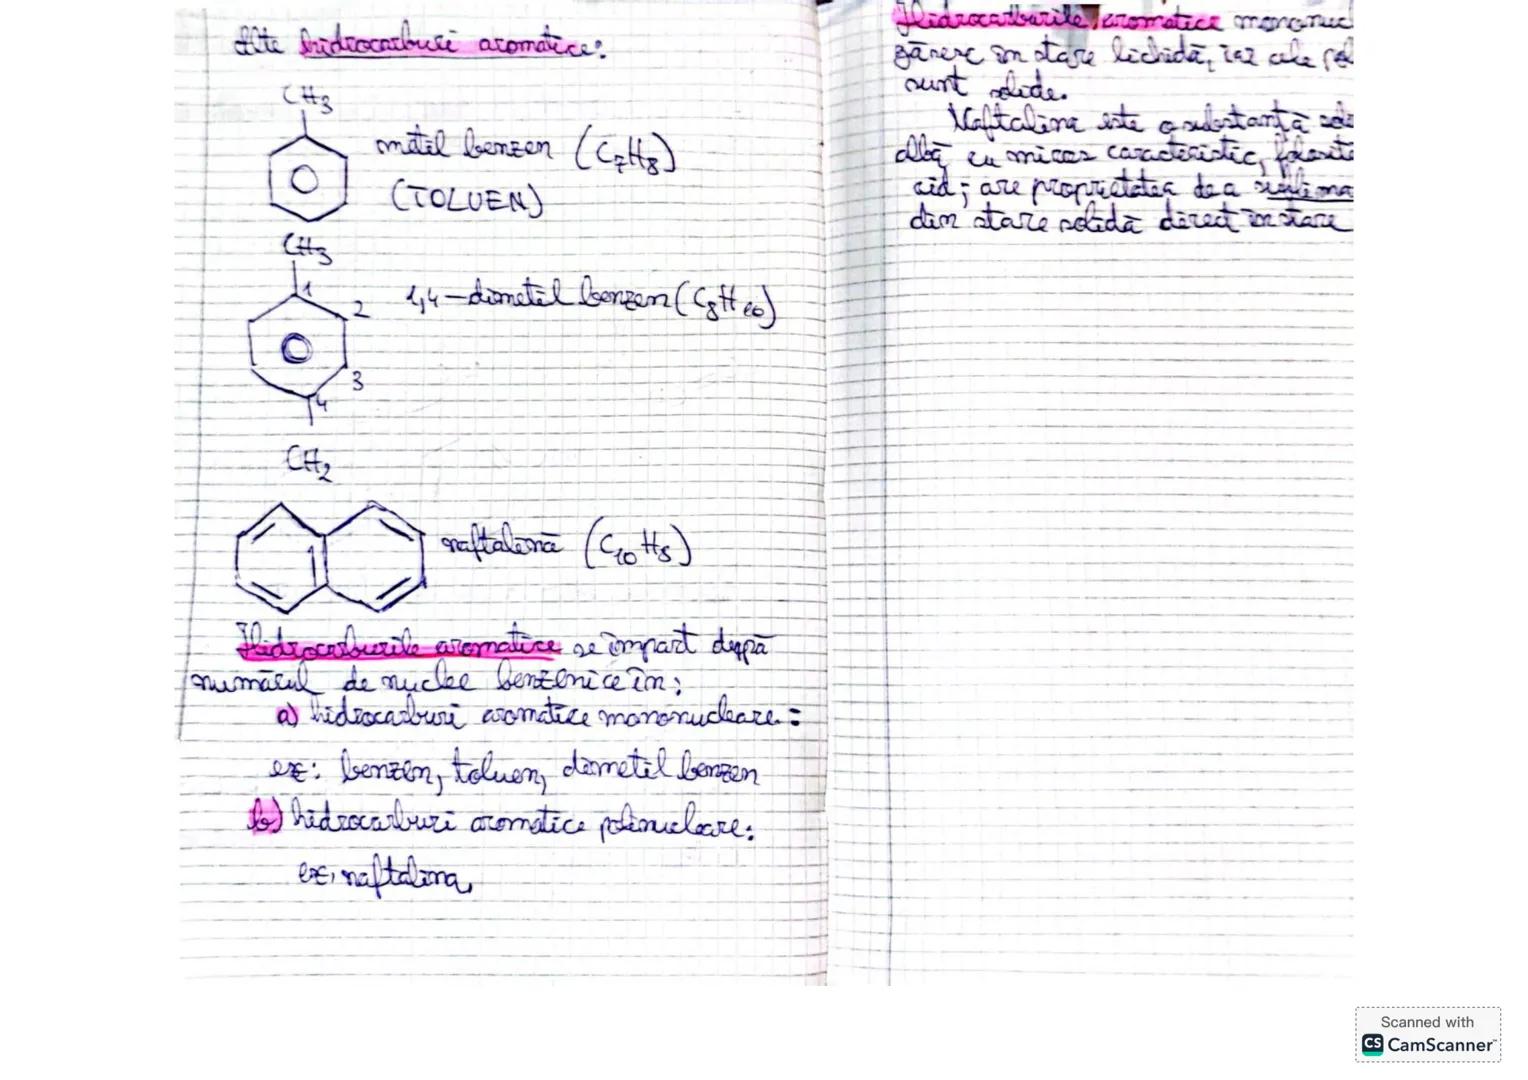 Alte hidrocarburi aromatice:
CH3
metil benzen (C7H8)
(TOLUEN)
CH3
1
2
1,4-dimetil benzen (C8H10)
3
4
CH2
naftalină (C10H8)
Hidrocarburile aromatice se împart după
numărul de nuclee benzenice în:
a) hidrocarburi aromatice mononucleare:
ex: benzen, toluen, dimetil benzen
b) hidrocarburi aromatice polinucleare:
ex, naftalina,
Hidrocarburile aromatice mononuc
găsesc în stare lichidă, iar cele pol
sunt solide.
Naftalina este o substanță soli
albă cu miros caracteristic, folosită
cid; are proprietatea de a sublima
din stare solidă direct în stare
Scanned with
CS CamScanner